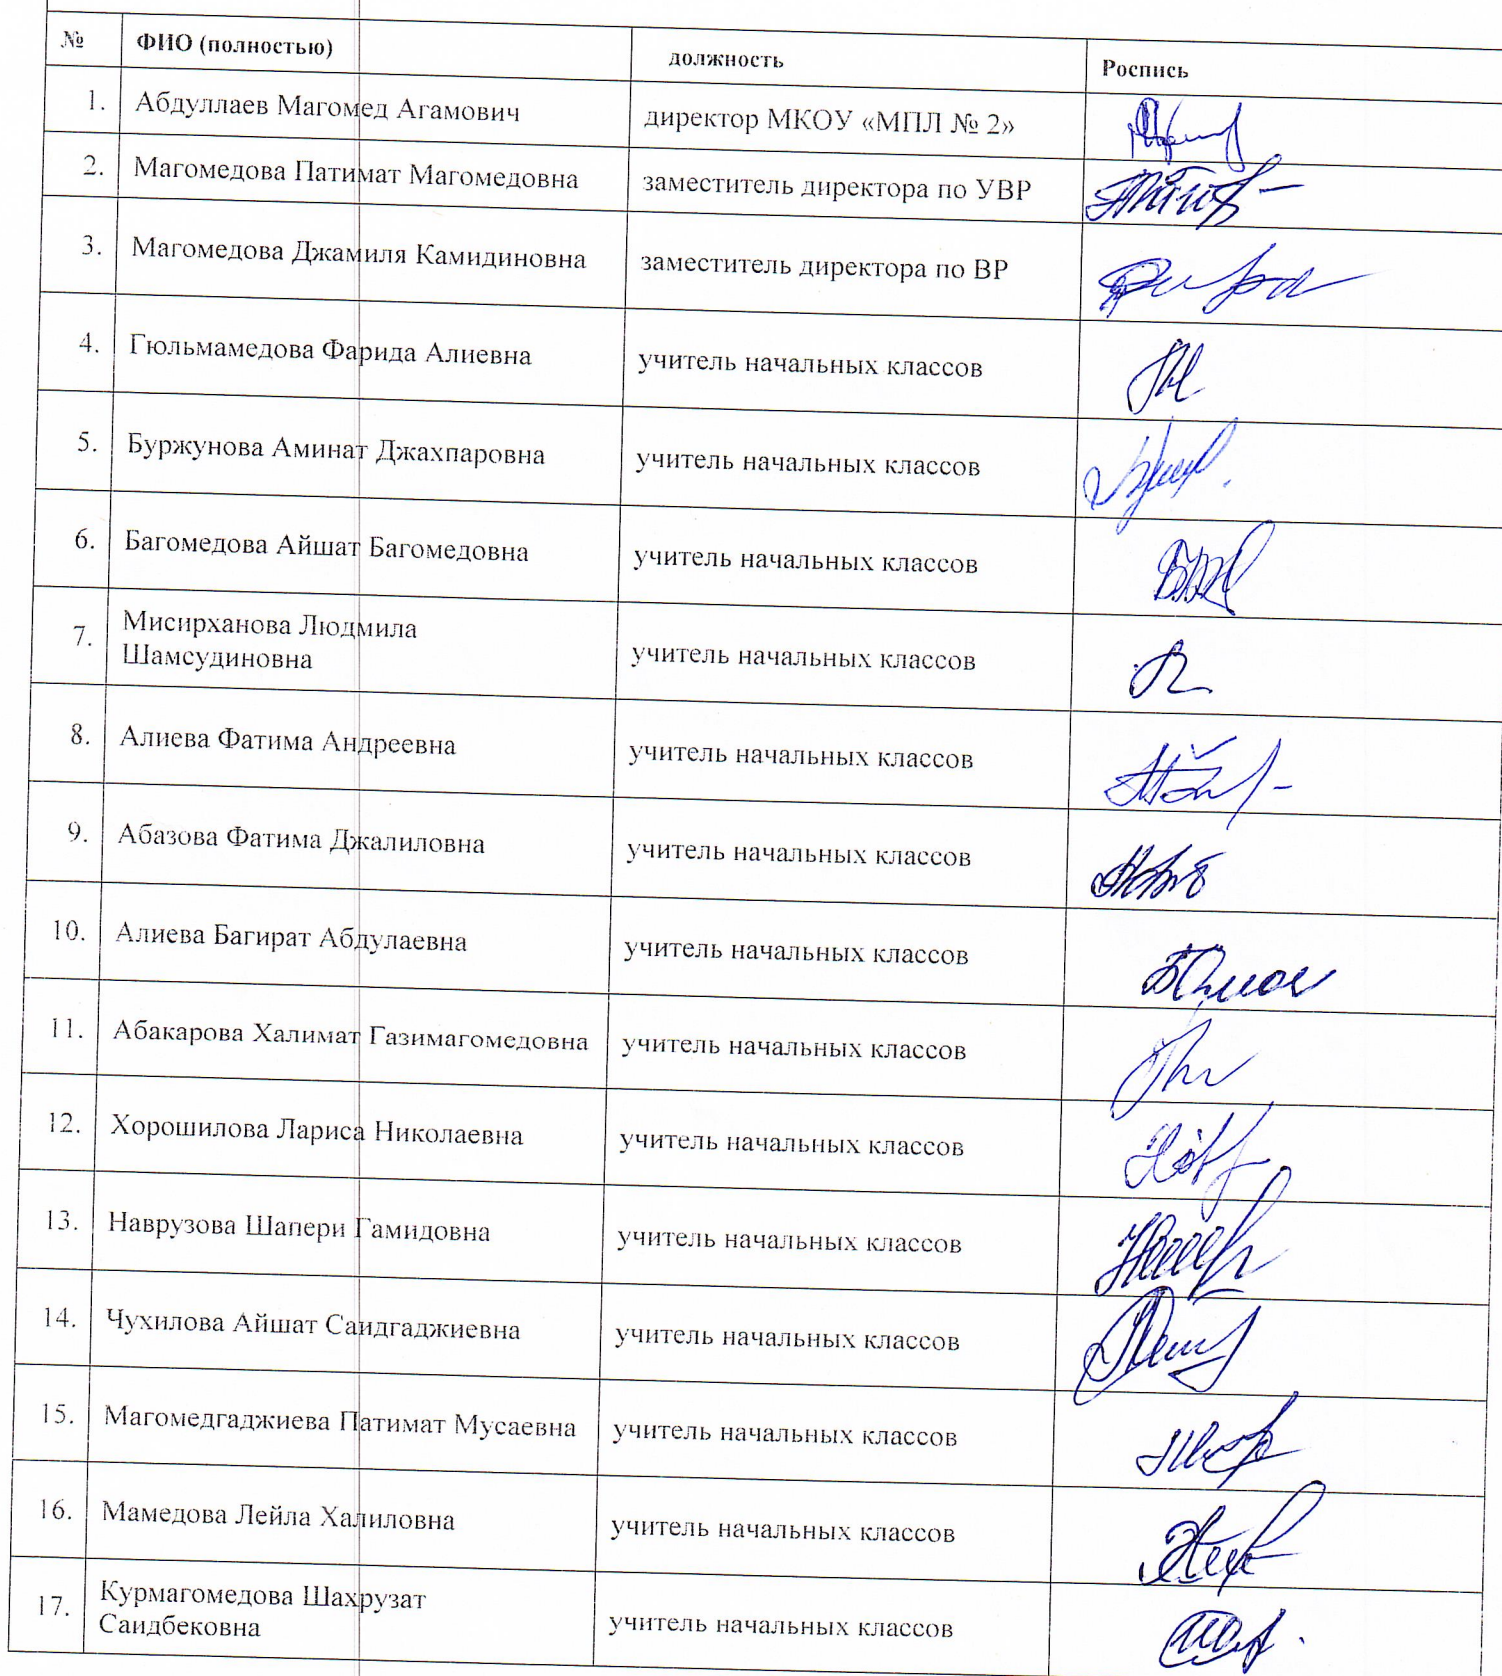 № ФИО (полностью) должность Роспись
1. Абдуллаев Магомед Агамович директор МКОУ «МПЛ № 2»
2. Магомедова Патимат Магомедовна заместитель директора по УВР
3. Магомедова Джамиля Камидиновна заместитель директора по ВР
4. Гюльмамедова Фарида Алиевна учитель начальных классов
5. Буржунова Аминат Джахпаровна учитель начальных классов
6. Багомедова Айшат Багомедовна учитель начальных классов
7. Мисирханова Людмила
Шамсудиновна учитель начальных классов
8. Алиева Фатима Андреевна учитель начальных классов
9. Абазова Фатима Джалиловна учитель начальных классов
10. Алиева Багират Абдулаевна учитель начальных классов
11. Абакарова Халимат Газимагомедовна учитель начальных классов
12. Хорошилова Лариса Николаевна учитель начальных классов
13. Наврузова Шапери Гамидовна учитель начальных классов
14. Чухилова Айшат Саидгаджиевна учитель начальных классов
15. Магомедгаджиева Патимат Мусаевна учитель начальных классов
16. Мамедова Лейла Халиловна учитель начальных классов
17. Курмагомедова Шахрузат
Саидбековна учитель начальных классов